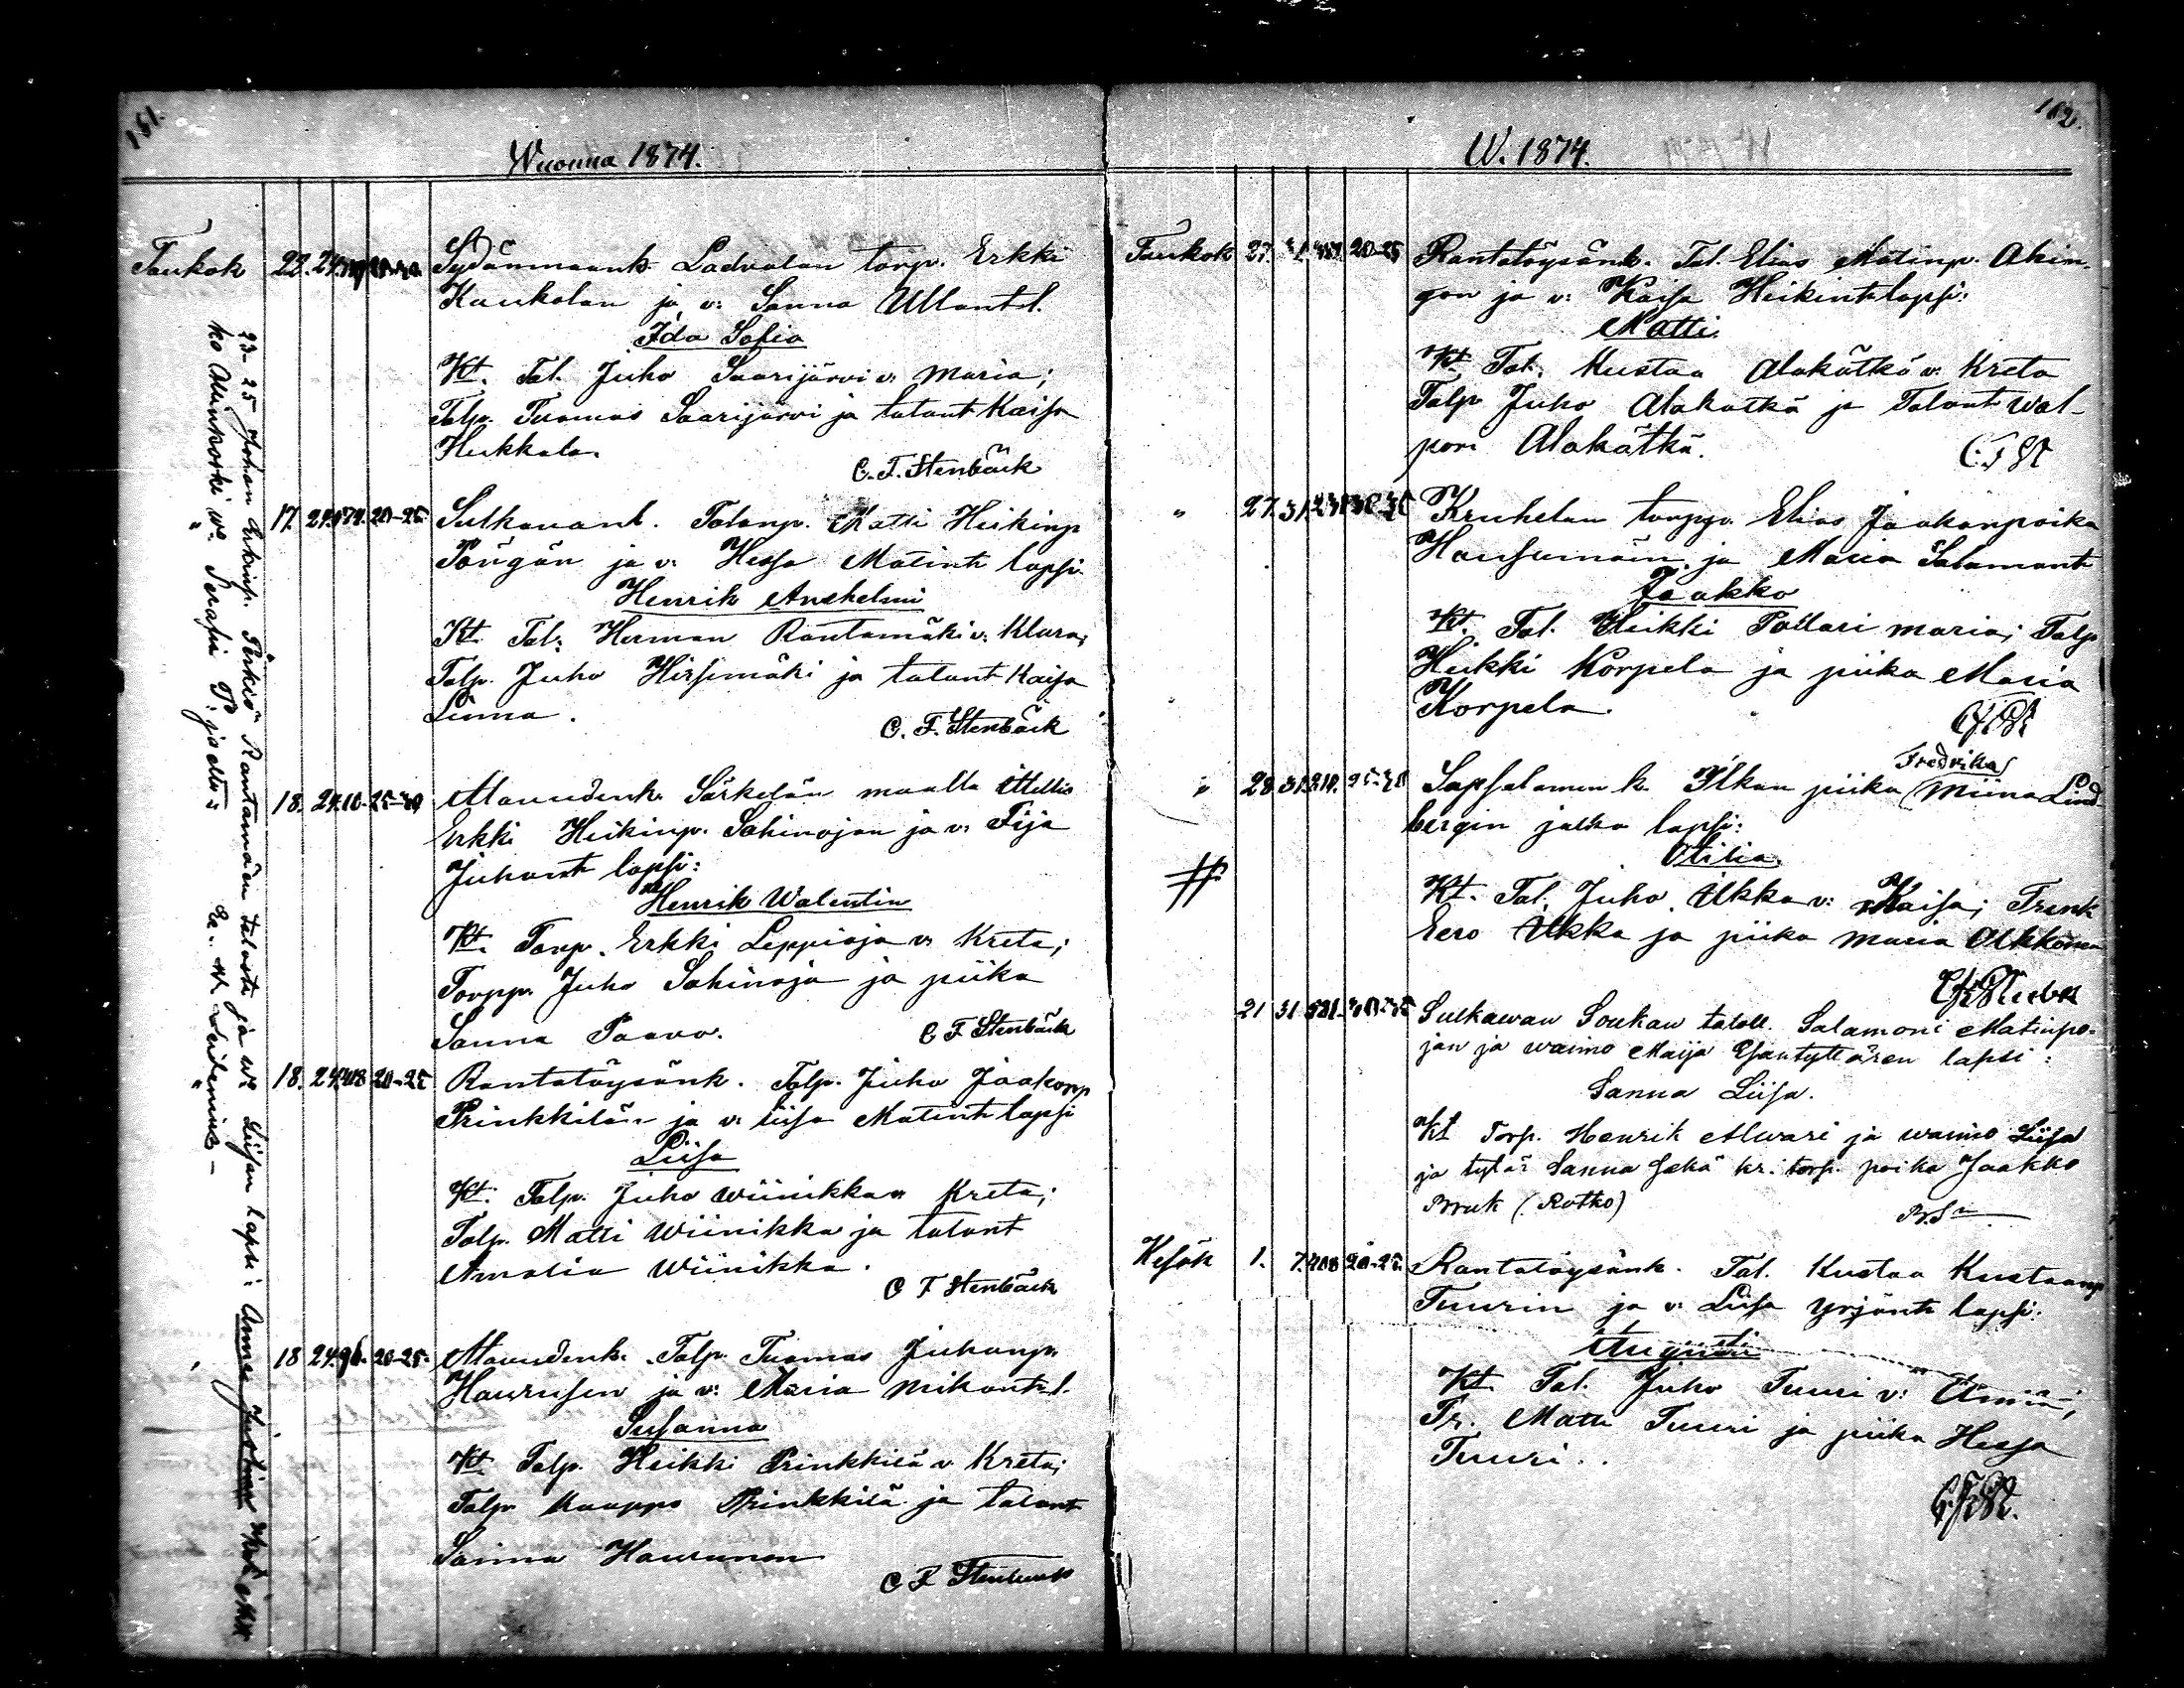 151.
Wuonna 1874.
Toukok 22. 24.
Sydänmaank. Ladvalan torp. Erkki
Kaukolan ja v: Sanna Ullantl.
Ida Sofia
Kt. Tal. Juho Saarijärvi v: Maria;
Talp. Tuomas Saarijärvi ja talont Kaisa
Heikkola.
C. F. Stenbäck
17. 24. 174. 20-25
Sulkavank. Talonp. Matti Heikinp
Pöngän ja v: Hessa Matintr lapsi
Henrik Anshelmi
Kt. Tal: Herman Rantamäki v: Klara;
Talp. Juho Hirsimäki ja talont Kaisa
Linna.
C. F. Stenbäck
18. 24. 10. 25-30
Alavudenk. Särkelän maalla Ittellis
Erkki Heikinp. Sahinojan ja v: Fija
Juhontr lapsi:
Henrik Walentin
Kt. Torp. Erkki Leppioja v: Kreta;
Torpp. Juho Sahinoja ja piika
Sanna Paavo.
C F Stenbäck
18. 24. 408 20-25
Rantatöysänk. Talp. Juho Jaakonp
Prinkkilän ja v: Liisa Matintr lapsi
Liisa
Kt. Talp. Juho Wiinikka v: Kreta;
Talp. Matti Wiinikka ja talont
Amalia Wiinikka.
C F Stenbäck
18 24. 96. 20-25.
Alavudenk. Talp. Tuomas Juhonp.
Haurusen ja v: Maria Mikontr l.
Susanna
Kt. Talp. Heikki Prinkkilä v. Kreta;
Talp. Kauppo Prinkkilä ja talont
Sanna Haurunen
C F Stenbäck
23- 25 Johan Erkinp. Perkiö Rantamäen talosta ja w: Liisan lapsi: Anna Justina
162.
W. 1874.
Toukok 27. 31. 20-25
Rantatöysänk. Tal. Elias Matinp. Akin-
gon ja v: Kaisa Heikintr lapsi:
Matti.
Kt. Tal. Kustaa Alakätkä v: Kreta
Talp. Juho Alakätkä ja Talont Wal-
pori Alakätkä.
C. F. St
" 27. 31. 231
Kruhelan torpp. Elias Jaakonpoika
Hansumäin ja Maria Salamontr
Jaakko
Kt. Tal. Heikki Pollari Maria; Talp
Heikki Korpela ja piika Maria
Korpela.
C F St
" 28. 31. 210. 25-30
Sapsalamen k. Ilkan piika (Fredrika) Miina Lind-
bergin jalka lapsi:
Otilia
Kt. Tal. Juho Ukka v: Kaisa; Trenk
Eero Ukka ja piika Maria Alkkonen
21 31 521. 30-35
Sulkawan Soukan taloll. Salamoni Matinpo-
jan ja waimo Maija Esantyttären lapsi:
Sanna Liisa.
Kt Torp. Henrik Alwari ja waimo Liisa
ja tytär Sanna sekä kr: torp. poika Jaakko
Bruk (Rotko)
Kesäk 1. 7. 408 20-25.
Rantatöysänk. Tal. Kustaa Kustaanp
Tuurin ja v: Liisa Yrjöntr lapsi:
Augusti
Kt. Tal. Juho Tuuri v: Anna;
Tr. Matti Tuuri ja piika Hessa
Tuuri.
C F St.